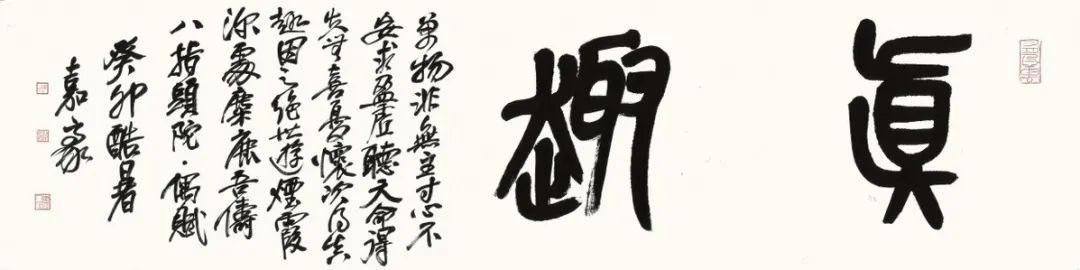 眞趣
萬物非無主寸心不
妄求盈虛聽天命得
失無喜憂懷次得真
趣因之絕世遊煙霞
深處麋鹿吾儔
八指頭陀·偶賦
癸卯酷暑
嘉